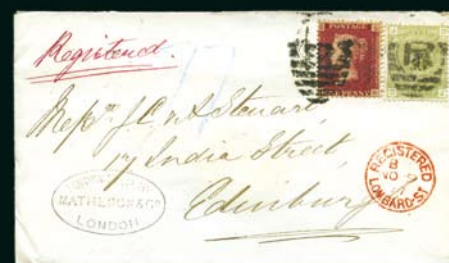 Registered.
POSTAGE
ONE PENNY
Messrs J. C. & A. Steuart,
17 India Street,
Edinburgh
MATHESON & Co
LONDON
REGISTERED
LOMBARD-ST